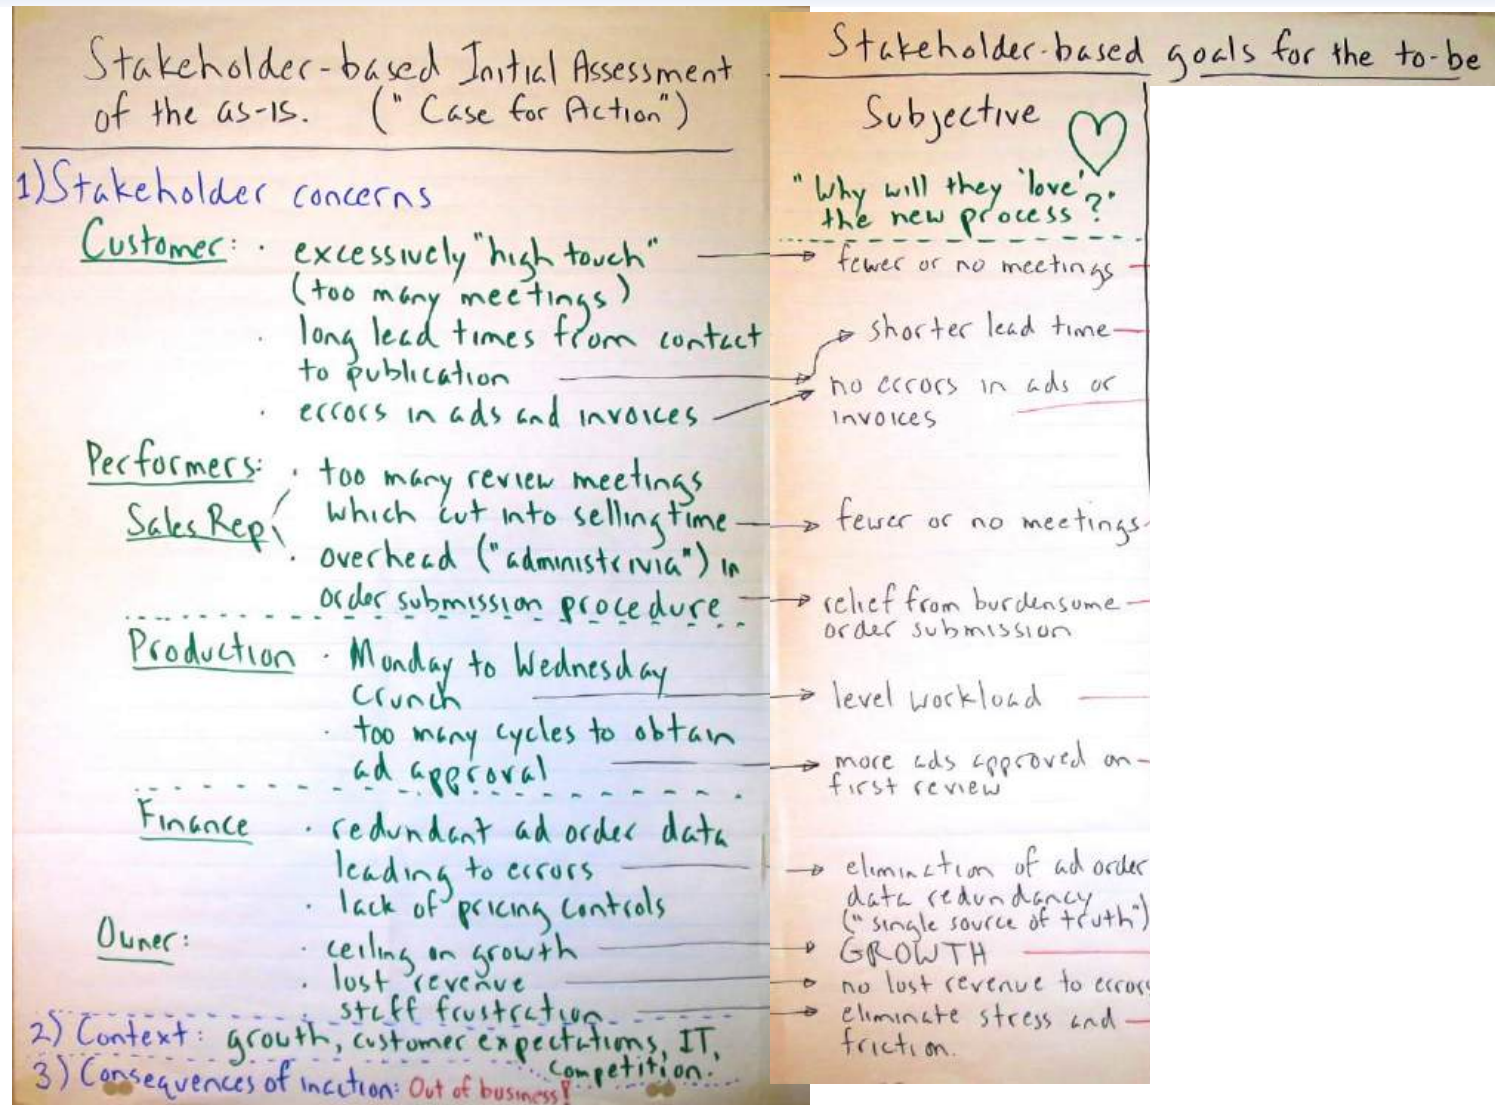 Stakeholder-based Initial Assessment
of the as-is. ("Case for Action")
1) Stakeholder concerns
Customer: · excessively "high touch"
(too many meetings)
· long lead times from contact
to publication
· errors in ads and invoices
Performers:
Sales Rep
· too many review meetings
which cut into selling time
· overhead ("administrivia") in
order submission procedure
Production · Monday to Wednesday
crunch
· too many cycles to obtain
ad approval
Finance · redundant ad order data
leading to errors
· lack of pricing controls
Owner: · ceiling on growth
· lost revenue
· staff frustration
2) Context: growth, customer expectations, IT,
competition.
3) Consequences of inaction: Out of business!
Stakeholder-based goals for the to-be
Subjective
"Why will they 'love'
the new process?"
fewer or no meetings
shorter lead time
no errors in ads or
invoices
fewer or no meetings
relief from burdensome
order submission
level workload
more ads approved on
first review
elimination of ad order
data redundancy
("single source of truth")
GROWTH
no lost revenue to errors
eliminate stress and
friction.